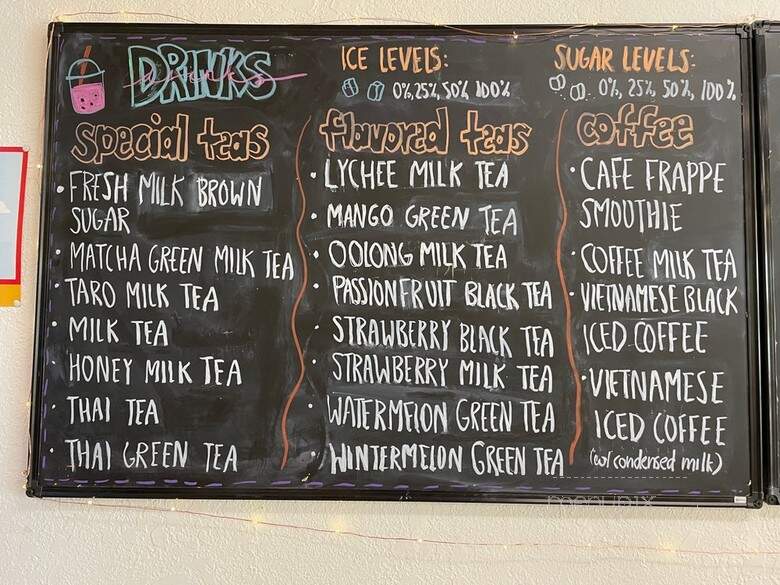 DRINKS
drinks
ICE LEVELS:
0%, 25%, 50%, 100%
SUGAR LEVELS:
0%, 25%, 50%, 100%
special teas
• FRESH MILK BROWN
SUGAR
• MATCHA GREEN MILK TEA
• TARO MILK TEA
• MILK TEA
• HONEY MILK TEA
• THAI TEA
• THAI GREEN TEA
flavored teas
• LYCHEE MILK TEA
• MANGO GREEN TEA
• OOLONG MILK TEA
• PASSIONFRUIT BLACK TEA
• STRAWBERRY BLACK TEA
• STRAWBERRY MILK TEA
• WATERMELON GREEN TEA
• WINTERMELON GREEN TEA
coffee
• CAFE FRAPPE
SMOOTHIE
• COFFEE MILK TEA
• VIETNAMESE BLACK
ICED COFFEE
• VIETNAMESE
ICED COFFEE
(w/ condensed milk)
menupix